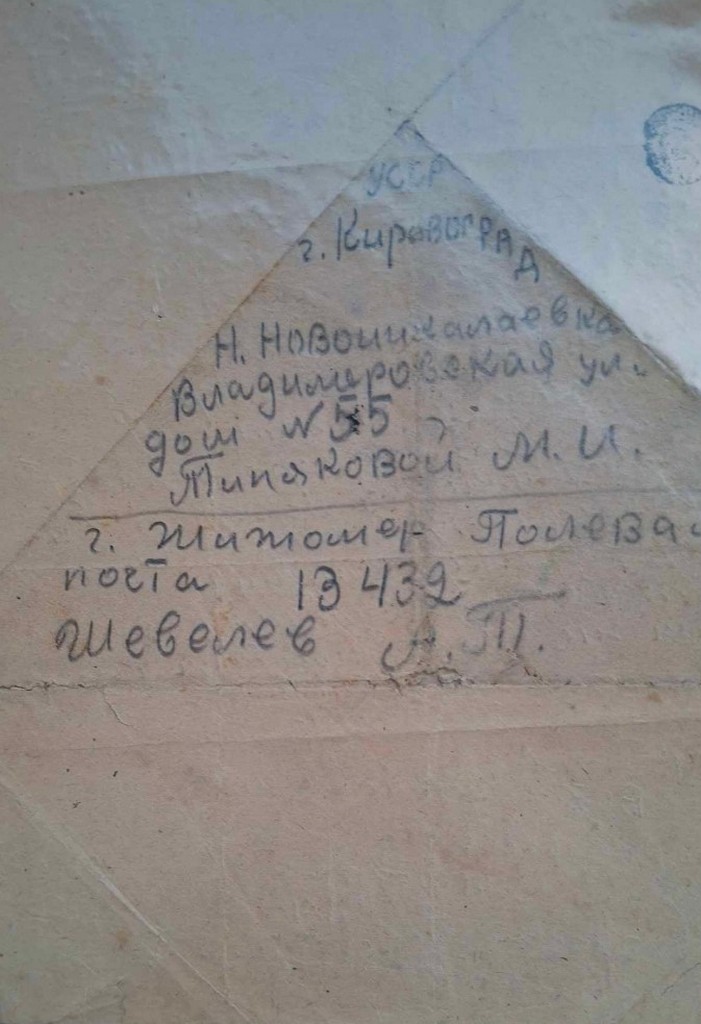 УССР
г. Кировоград
Н. Новоникалаевка
Владимеровская ул.
дом № 55
Типяковой М. И.
г. Житомер Полевая
почта 13432
Шевелев А.П.